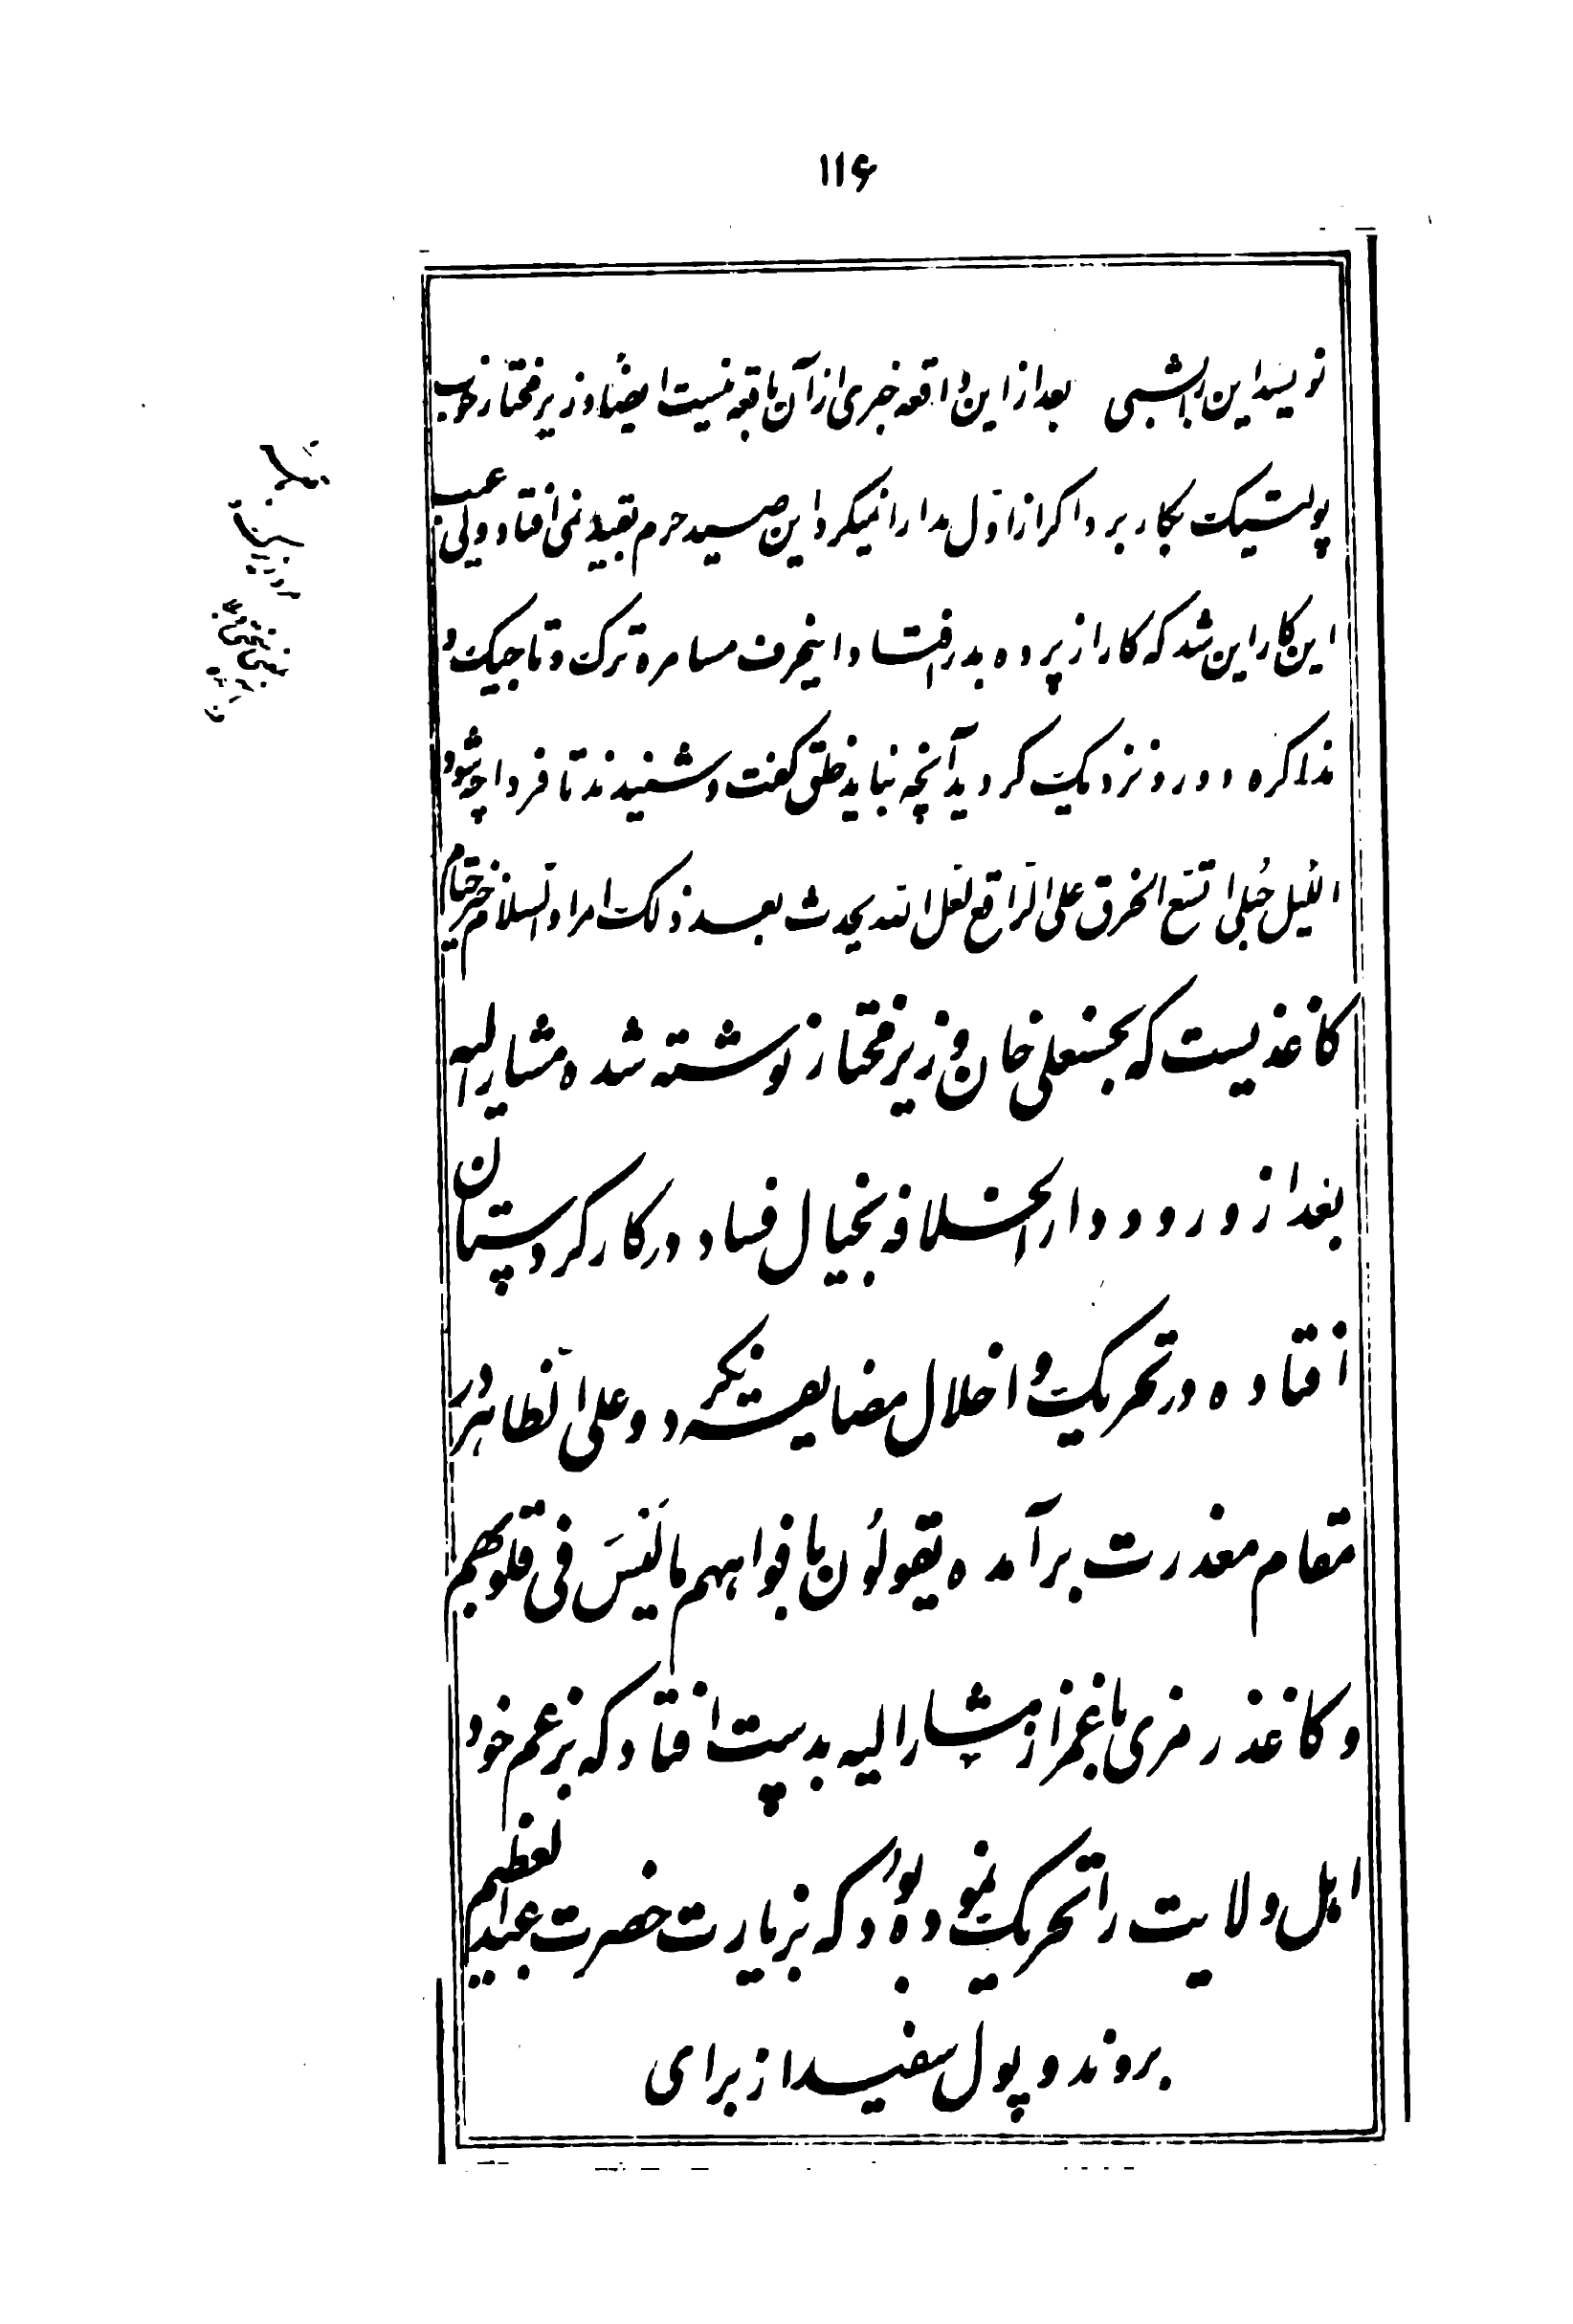 ۱۱۶
نویسد این راتبشبی بعد از این واقعه خبری از آن باقعه نیست ایضاً وزیر مختار خوب
پولتیک بکار برد اگر از اول مدارا نمیکرد این صید حرم بقید نمی افتاد ولی عیب
این کار این شد که کار از پرده بدر افتاد و اینحرف مسامره ترک و تاجیک و
مذاکره دور و نزدیک گردید آنچه نباید خلق گفت و شنیدند تا فردا چه شود
اللیل حبلی اتسع الخرق علی الراقع لعل الله یحدث بعد ذلک امرا والسلام خیر ختام
کاغذیست که بحسنعلی خان وزیر مختار نوشته شده مشار الیه
بعد از ورود دار الخلافه بخیال فساد در کار کردستان
افتاده در تحریک و اخلال مضایقه نکرد و علی الظاهر در
مقام معذرت برآمده یقولون بافواههم ما لَیسَ فی قلوبهم
و کاغذ رمزی با غمز از مشار الیه بدست افتاد که بزعم خود
اهل ولایت را تحریک نموده بود که بزیارت حضرت عبدالعظیم
بروند و پول سفید از برای